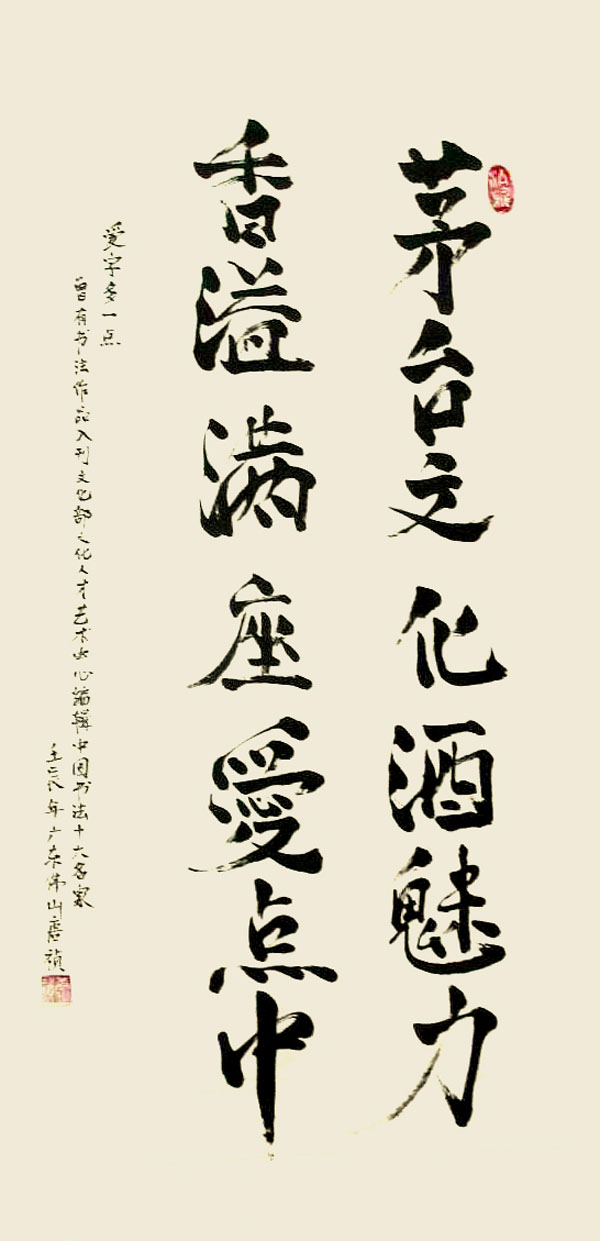 茅台文化酒魅力
香溢满座愛点中
愛字多一点
曾有书法作品入刊文化部文化人才艺术中心编辑中国书法十大名家
壬辰年广东佛山